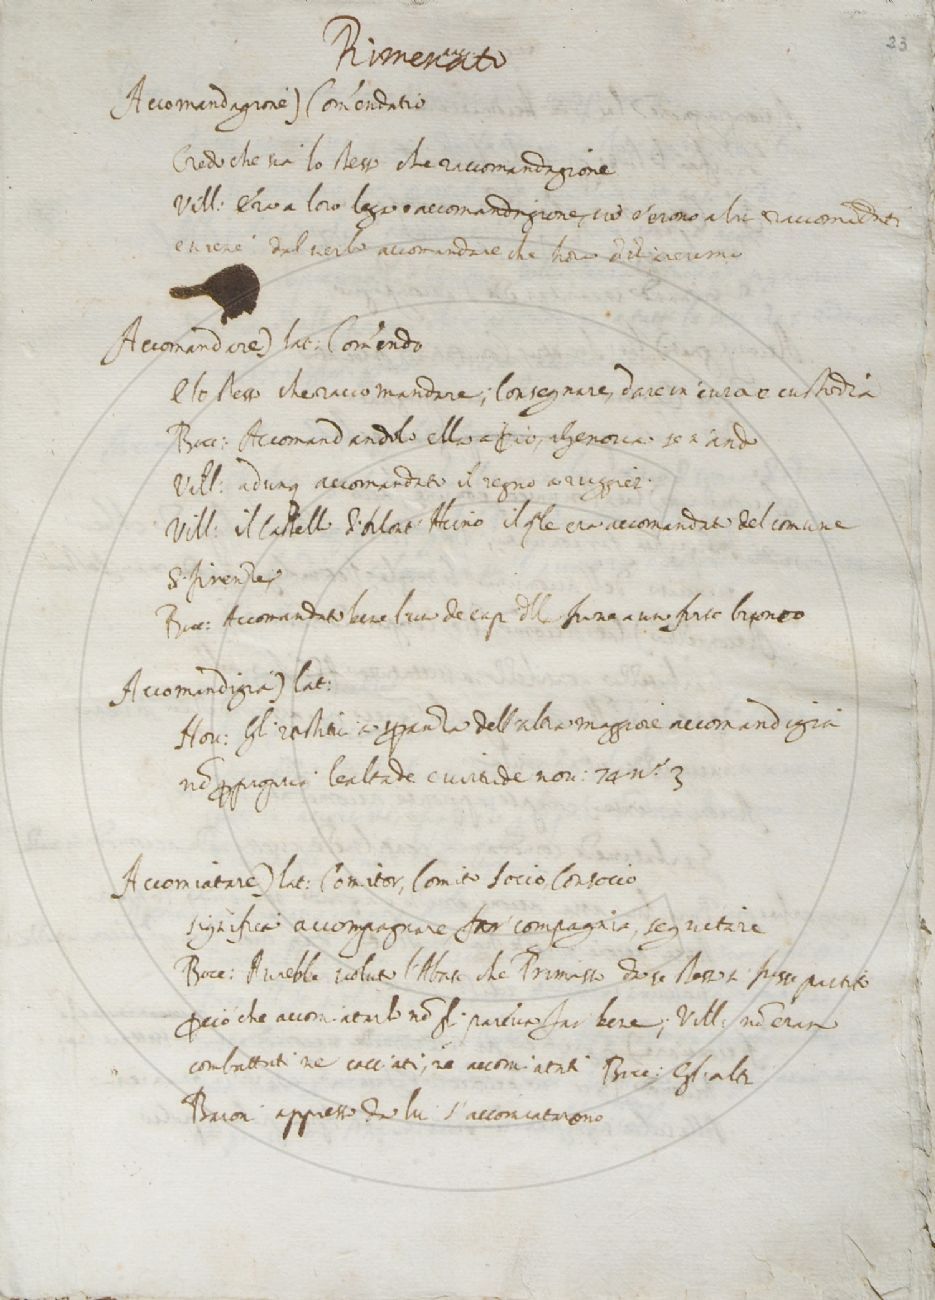 23
Accomandagione) Com̃endatio
Credo che sia lo stesso che raccomandagione
Vill: Era a loro lega o accomandagione, cioè s'erono a lui raccomandati
e viene dal verbo accomandare che hora
Accomandare) lat: Com̃endo
è lo stesso che raccomandare; Consegnare, dare in cura o custodia
Bocc: Accomandandolo ella a Dio, al Genova se n'andò
Vill: adunq accomandato il regno a ruggieri
Vill: il Castello era accomandato del comune
di firenze
Bocc: Accomandato bene l'uno de capi della fune a un forte bronco
Accomandigia) lat:
Nov: Gl'restiti a speranza dell'altra maggiore accomandigia
leal tade e virtude nov: 74 n.º 3
Accomiatare) lat: Comitor, Comito Socio, Consocio
significa accompagnare, far compagnia, seguitare
Bocc: Avrebbe voluto l'Abate che Primasso da se stesso si fosse partito
perciò che accomiatarlo nõ gli pareva far bene; Vill: nõ eran
combattuti ne cacciati, ne accomiatati Bocc: Gl'altri
Baroni appresso da lui s'accomiatarono